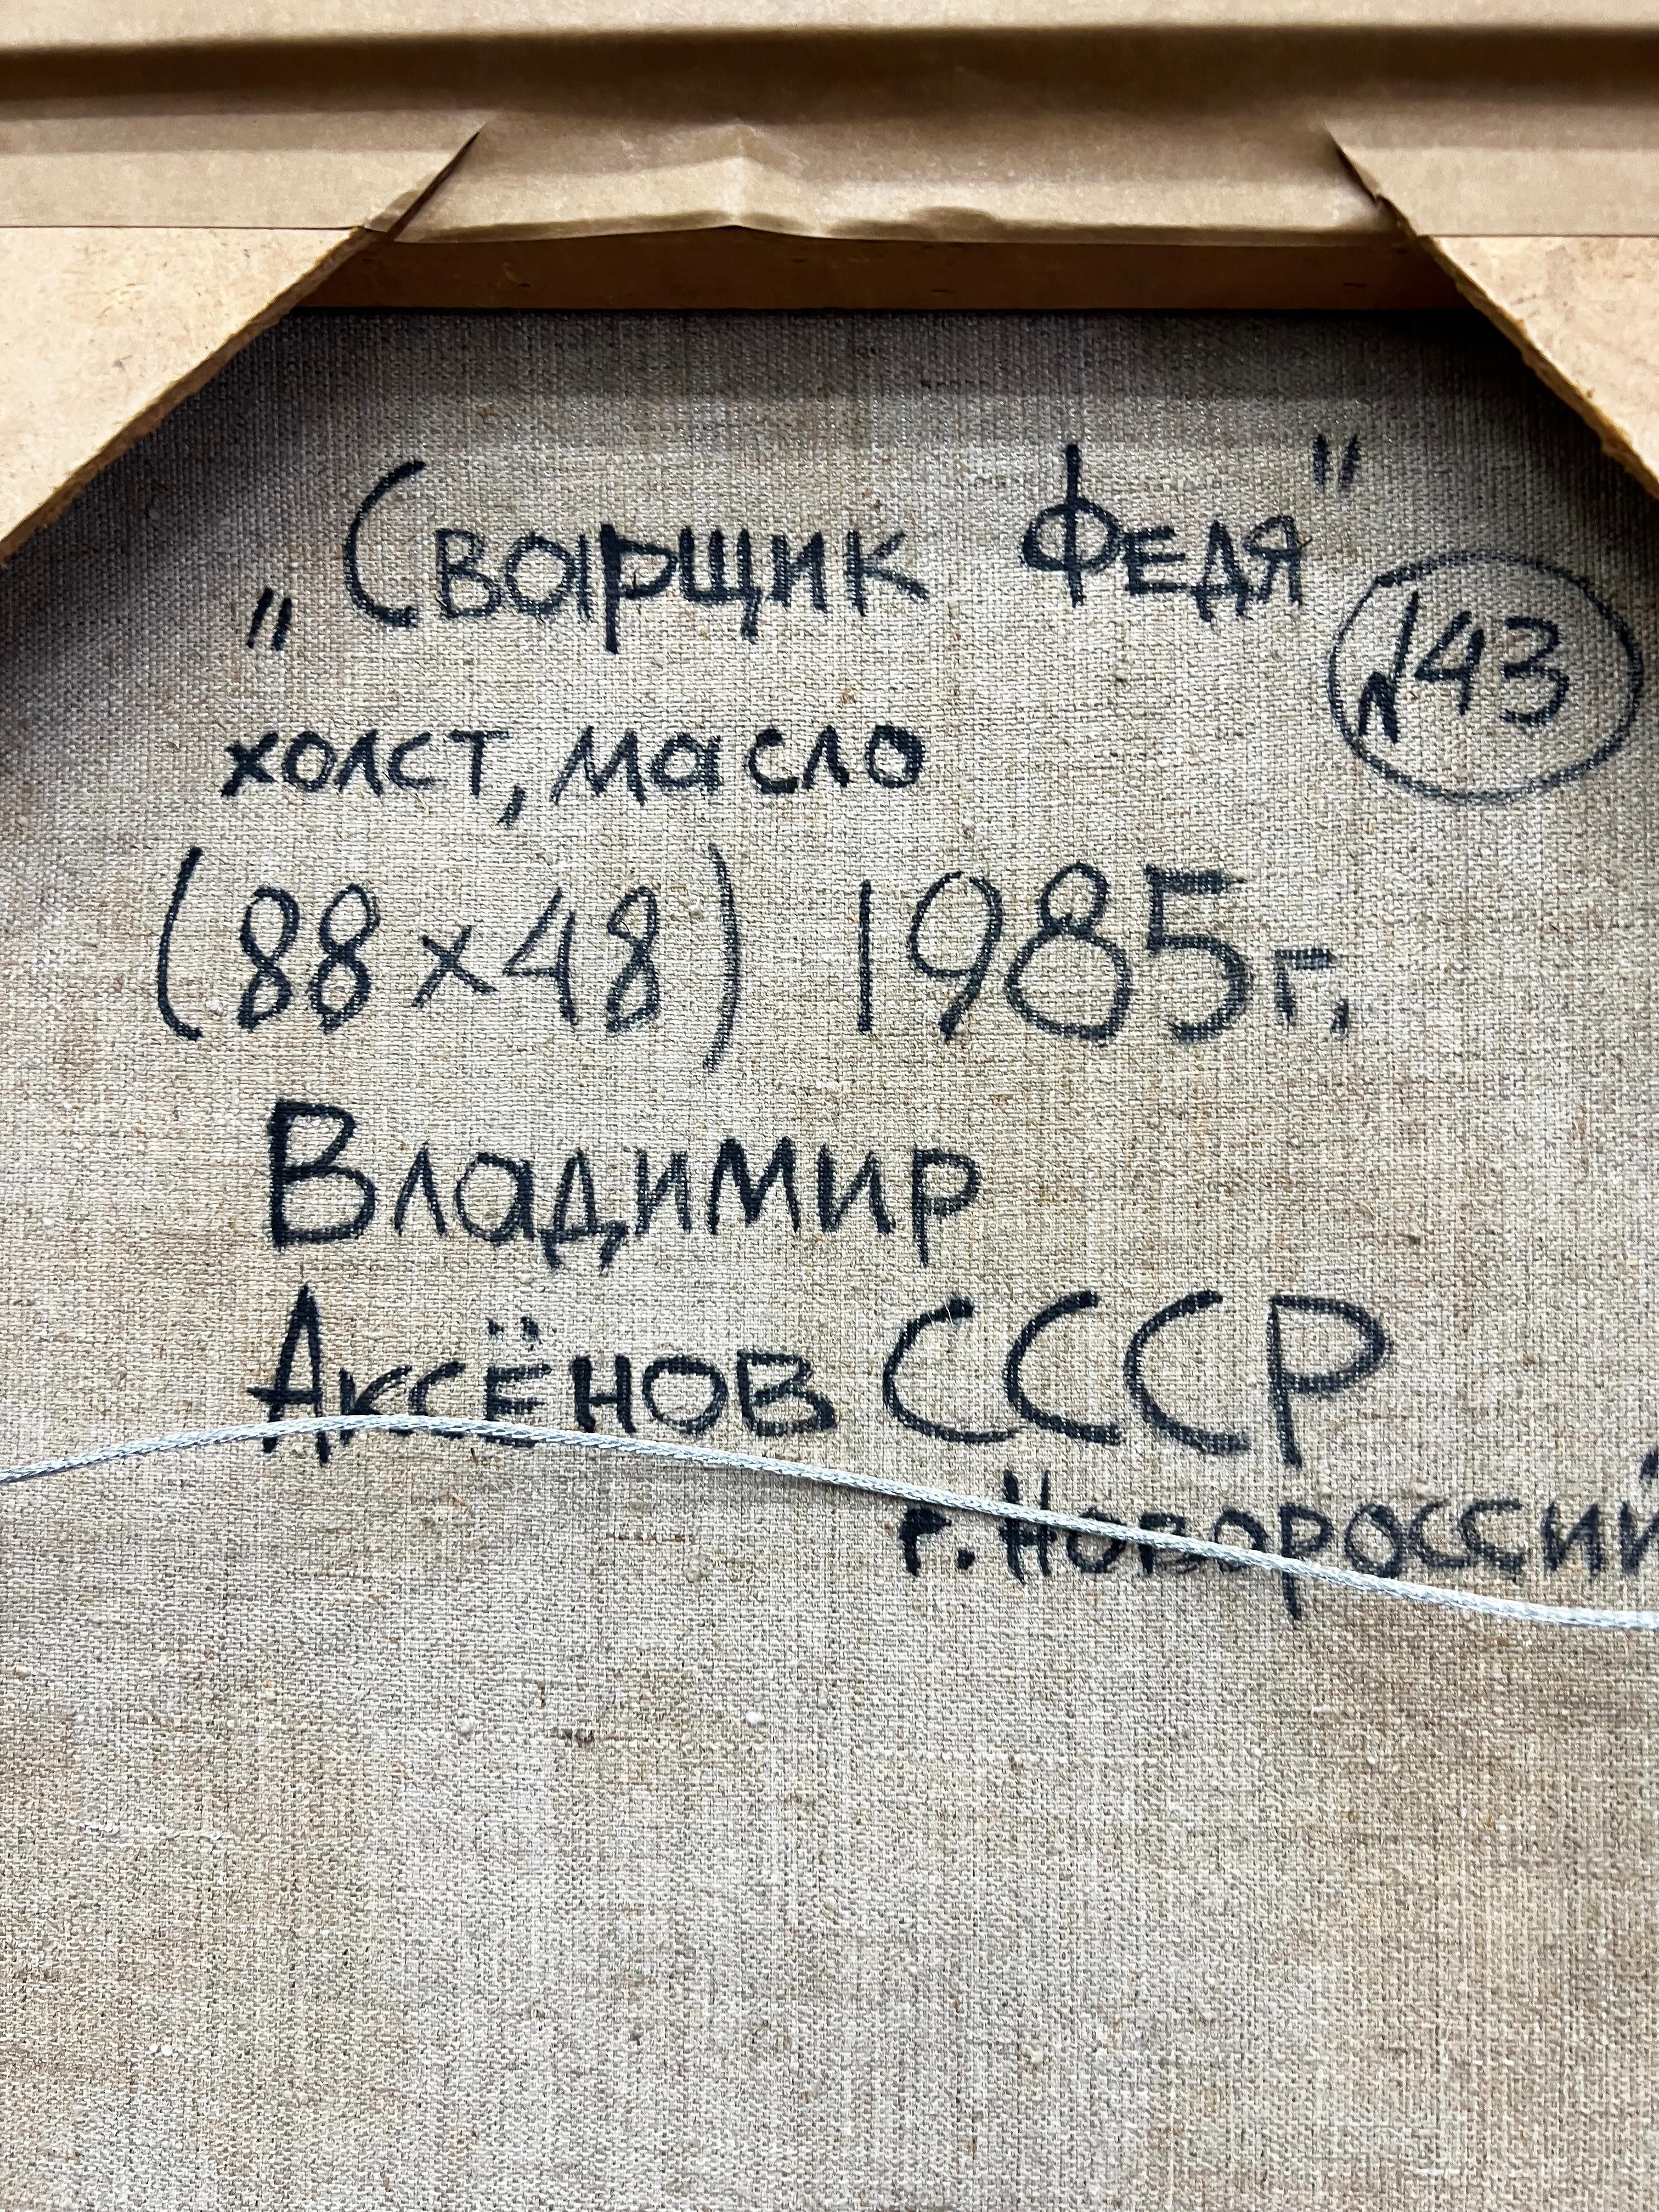 „Сварщик Федя"
N43
холст, масло
(88x48) 1985г,
Владимир
Аксёнов СССР
г. Новороссий